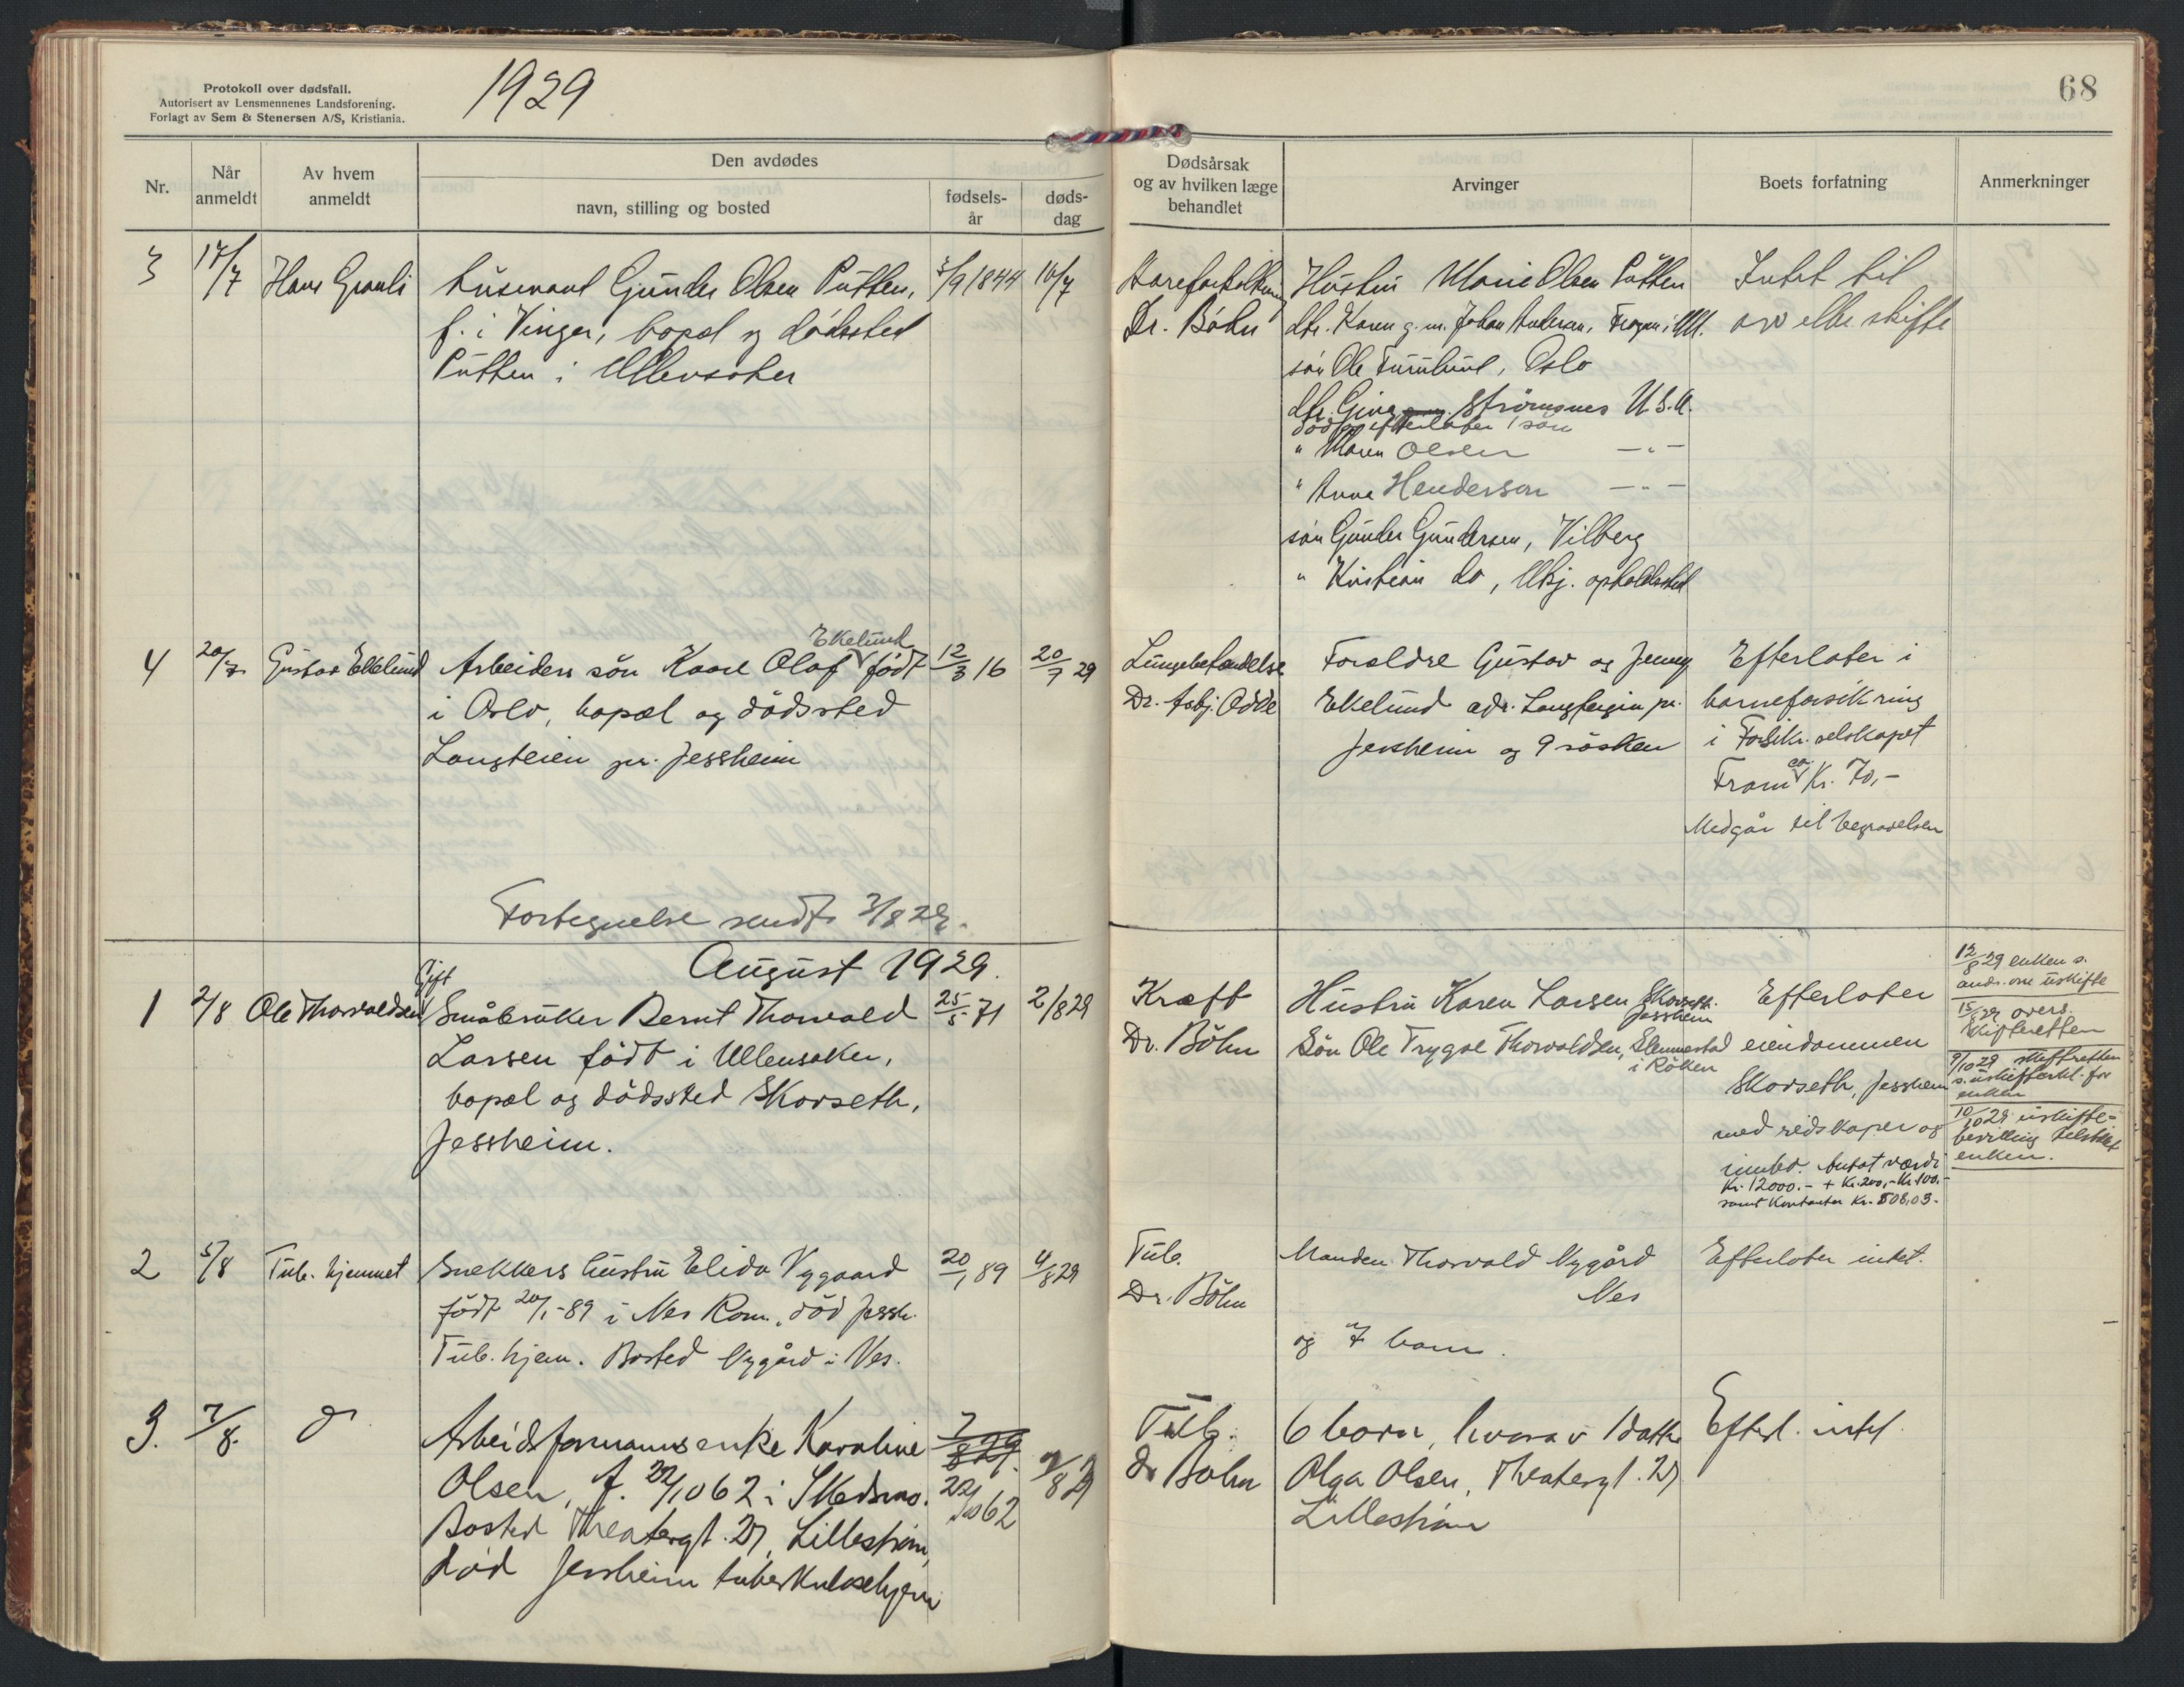 Protokoll over dødsfall.
Autorisert av Lensmennenes Landsforening.
Forlagt av Sem & Stenersen A/S, Kristiania.
1929
68
Nr.
Når anmeldt
Av hvem anmeldt
Den avdødes
navn, stilling og bosted
fødsels-år
døds-dag
Dødsårsak og av hvilken læge behandlet
Arvinger
Boets forfatning
Anmerkninger
3 17/7 Hans Grauli
husmand Gunder Olsen Putten,
f. i Vinger, bopæl og dødssted
Putten i Ullensaker
5/9 1844 10/7
Dr. Böhn
Hustru Marie Olsen Putten
dtr. Karen g. m. Johan Andersen, Frogner i Ull.
søn Ole Furulund, Oslo
dtr. Gina Strömsnes U.S.A.
död efterlater 1 søn
" Maren Olsen — " —
" Anna Henderson — " —
søn Gunder Gundersen, Vilberg
" Kristian do, Ubkj. opholdssted
Intet til
arv eller skifte
4 20/7 Gustav Ekelund
Ekelund
Arbeiders sön Kaare Olaf født
i Oslo, bopæl og dödssted
Langteien pr. Jessheim
12/3 16 20/7 29
Lungebetændelse
Dr. Asbj. Odde
Forældre Gustav og Jenny
Ekelund adr. Langteigen pr.
Jessheim og 9 sösken
Efterlater i
barneforsikring
i Forsikr. selskapet
Fram ca. Kr. 70,-
Medgår til begravelsen
Fortegnelse sendt 3/8 29.
August 1929.
1 2/8 Ole Thorvaldsen
Gift
Småbruker Bernt Thorvald
Larsen födt i Ullensaker,
bopæl og dödssted Skovseth,
Jessheim.
25/5 71 2/8 29
Kræft
Dr. Böhn
Hustru Karen Larsen Skovseth. Jessheim
Sön Ole Trygve Thorvaldsen, Slemmestad
i Röken
Efterlater
eiendommen
Skovseth, Jessheim
med redskaper og
innbo. Antat værdi
Kr. 12000.- + Kr. 200,- Kr. 100.-
samt Kontanter Kr. 508,03.-
12/8 29 enken s.
andr. om uskifte
15/8 29 overs.
skifteretten
9/10 29 skifteretten
s. uskifteerkl. for
enken
10/10 29 uskifte-
bevilling tilstillet
enken.
2 5/8 Tub. hjemmet
Snekkers hustru Elida Nygaard
födt 20/1-89 i Nes Rom., död Jessh.
Tub. hjem. Bosted Nygård i Nes.
20/1 89 4/8 29
Tub.
Dr. Böhn
Manden Thorvald Nygård
Nes
og 7 barn.
Efterlater intet.
3. 7/8.
Arbeidsformanns enke Karoline
Olsen, f. 22/10 62 i Skedsmo.
Bosted Theatergt. 27, Lilleström,
död Jessheim tuberkulosehjem
7/8 29.
22/10 62
7/8 29
Tub.
dr Böhn
6 barn, hvorav 1 datter
Olga Olsen, Theatergt. 27
Lilleström
Efterl. intet.